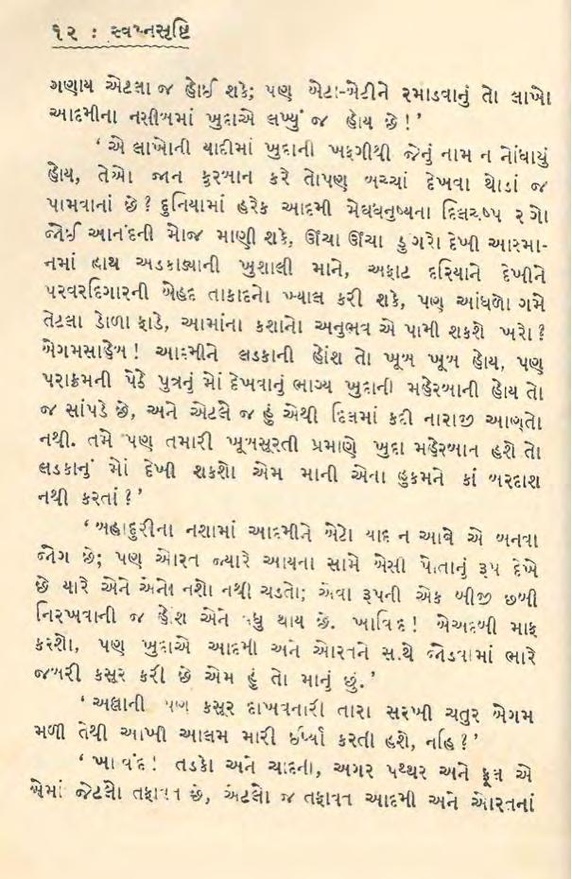 ૧૨ : સ્વપ્નસૃષ્ટિ
ગણાય એટલા જ હોઈ શકે; પણ બેટા-બેટીને રમાડવાનું તો લાખો
આદમીના નસીબમાં ખુદાએ લખ્યું જ હોય છે !’
‘ એ લાખોની યાદીમાં ખુદાની ખફગીથી જેનું નામ ન નોંધાયું
હોય, તેઓ જાન કુરબાન કરે તોપણ બચ્ચાં દેખવા થોડાં જ
પામવાનાં છે ? દુનિયામાં હરેક આદમી મેઘધનુષ્યના દિલચશ્પ રંગો
જોઈ આનંદની મોજ માણી શકે, ઊંચા ઊંચા ડુંગરો દેખી આસ્મા-
નમાં હાથ અડકાડ્યાની ખુશાલી માને, અફાટ દરિયાને દેખીને
પરવરદિગારની બેહદ તાકાદનો ખ્યાલ કરી શકે, પણ આંધળો ગમે
તેટલા ડોળા ફાડે, આમાંના કશાનો અનુભવ એ પામી શકશે ખરો ?
બેગમસાહેબ ! આદમીને લડકાની હોંશ તો ખૂબ ખૂબ હોય, પણ
પરાક્રમની પેઠે પુત્રનું મોં દેખવાનું ભાગ્ય ખુદાની મહેરબાની હોય તો
જ સાંપડે છે, અને એટલે જ હું એથી દિલમાં કદી નારાજી આણતો
નથી. તમે પણ તમારી ખૂબસૂરતી પ્રમાણે ખુદા મહેરબાન હશે તો
લડકાનું મોં દેખી શકશો એમ માની એના હુકમને કાં બરદાશ
નથી કરતાં ?’
‘ બહાદુરીના નશામાં આદમીને બેટો યાદ ન આવે એ બનવા
જોગ છે; પણ ઓરત જ્યારે આયના સામે બેસી પોતાનું રૂપ દેખે
છે ત્યારે એને એનો નશો નથી ચડતો; એવા રૂપની એક બીજી છબી
નિરખવાની જ હોંશ એને વધુ થાય છે. ખાવિંદ ! બેઅદબી માફ
કરશો, પણ ખુદાએ આદમી અને ઓરતને સાથે જોડવામાં ભારે
જબરી કસૂર કરી છે એમ હું તો માનું છું.’
‘ અલ્લાની પણ કસૂર દાખવનારી તારા સરખી ચતુર બેગમ
મળી તેથી આખી આલમ મારી ઈર્ષ્યા કરતી હશે, નહિ ?’
‘ ખાવંદ ! તડકો અને ચાંદની, અગર પથ્થર અને ફૂલ એ
બેમાં જેટલો તફાવત છે, એટલો જ તફાવત આદમી અને ઓરતનાં